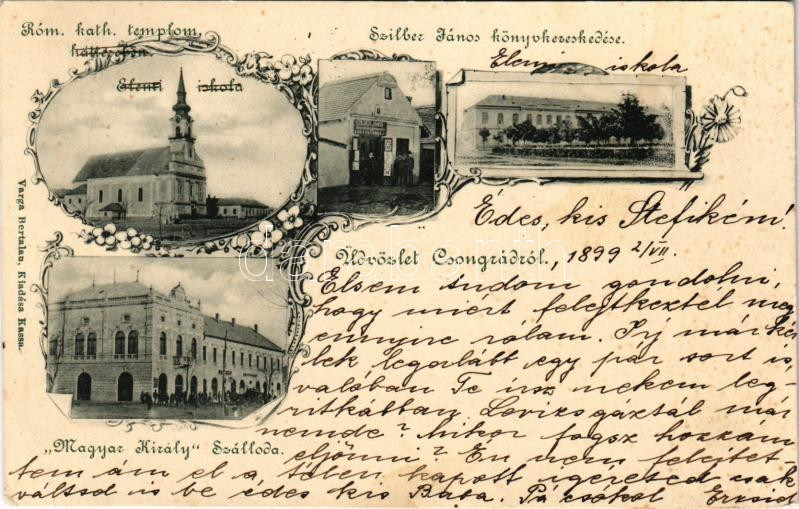 Róm. kath. templom
háttérben.
Elemi iskola
Szilber János könyvkereskedése.
Elemi iskola
Varga Bertalan, Kiadása Kassa.
Édes, kis Stefikém!
Üdvözlet Csongrádról., 1899 2/VII.
Elsem tudom gondolni,
hogy miért felejtkeztel meg
ennyire rólam. Irj már kér
lek legalább egy pár sort is,
valóban Te irsz nekem leg-
ritkábban. Lovizsgáztál már
nemde? Mikor fogsz hozzám
eljönni? En nem felejtet-
tem ám el a télen kapott igéreted csak
váltsd is be édes kis Baba. Pá csókol Erzsid
„Magyar Király" Szálloda.
darabanth